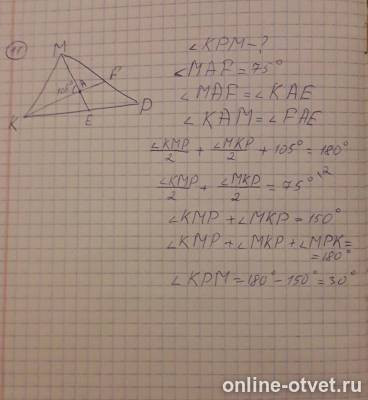 15
M
F
105° A
K
E
P
∠KPM-?
∠MAF=75°
∠MAF=∠KAE
∠KAM=∠FAE
∠KMP/2 + ∠MKP/2 + 105° = 180°
∠KMP/2 + ∠MKP/2 = 75° \2
∠KMP + ∠MKP = 150°
∠KMP + ∠MKP + ∠MPK =
= 180°
∠KPM = 180° - 150° = 30°
online-otvet.ru